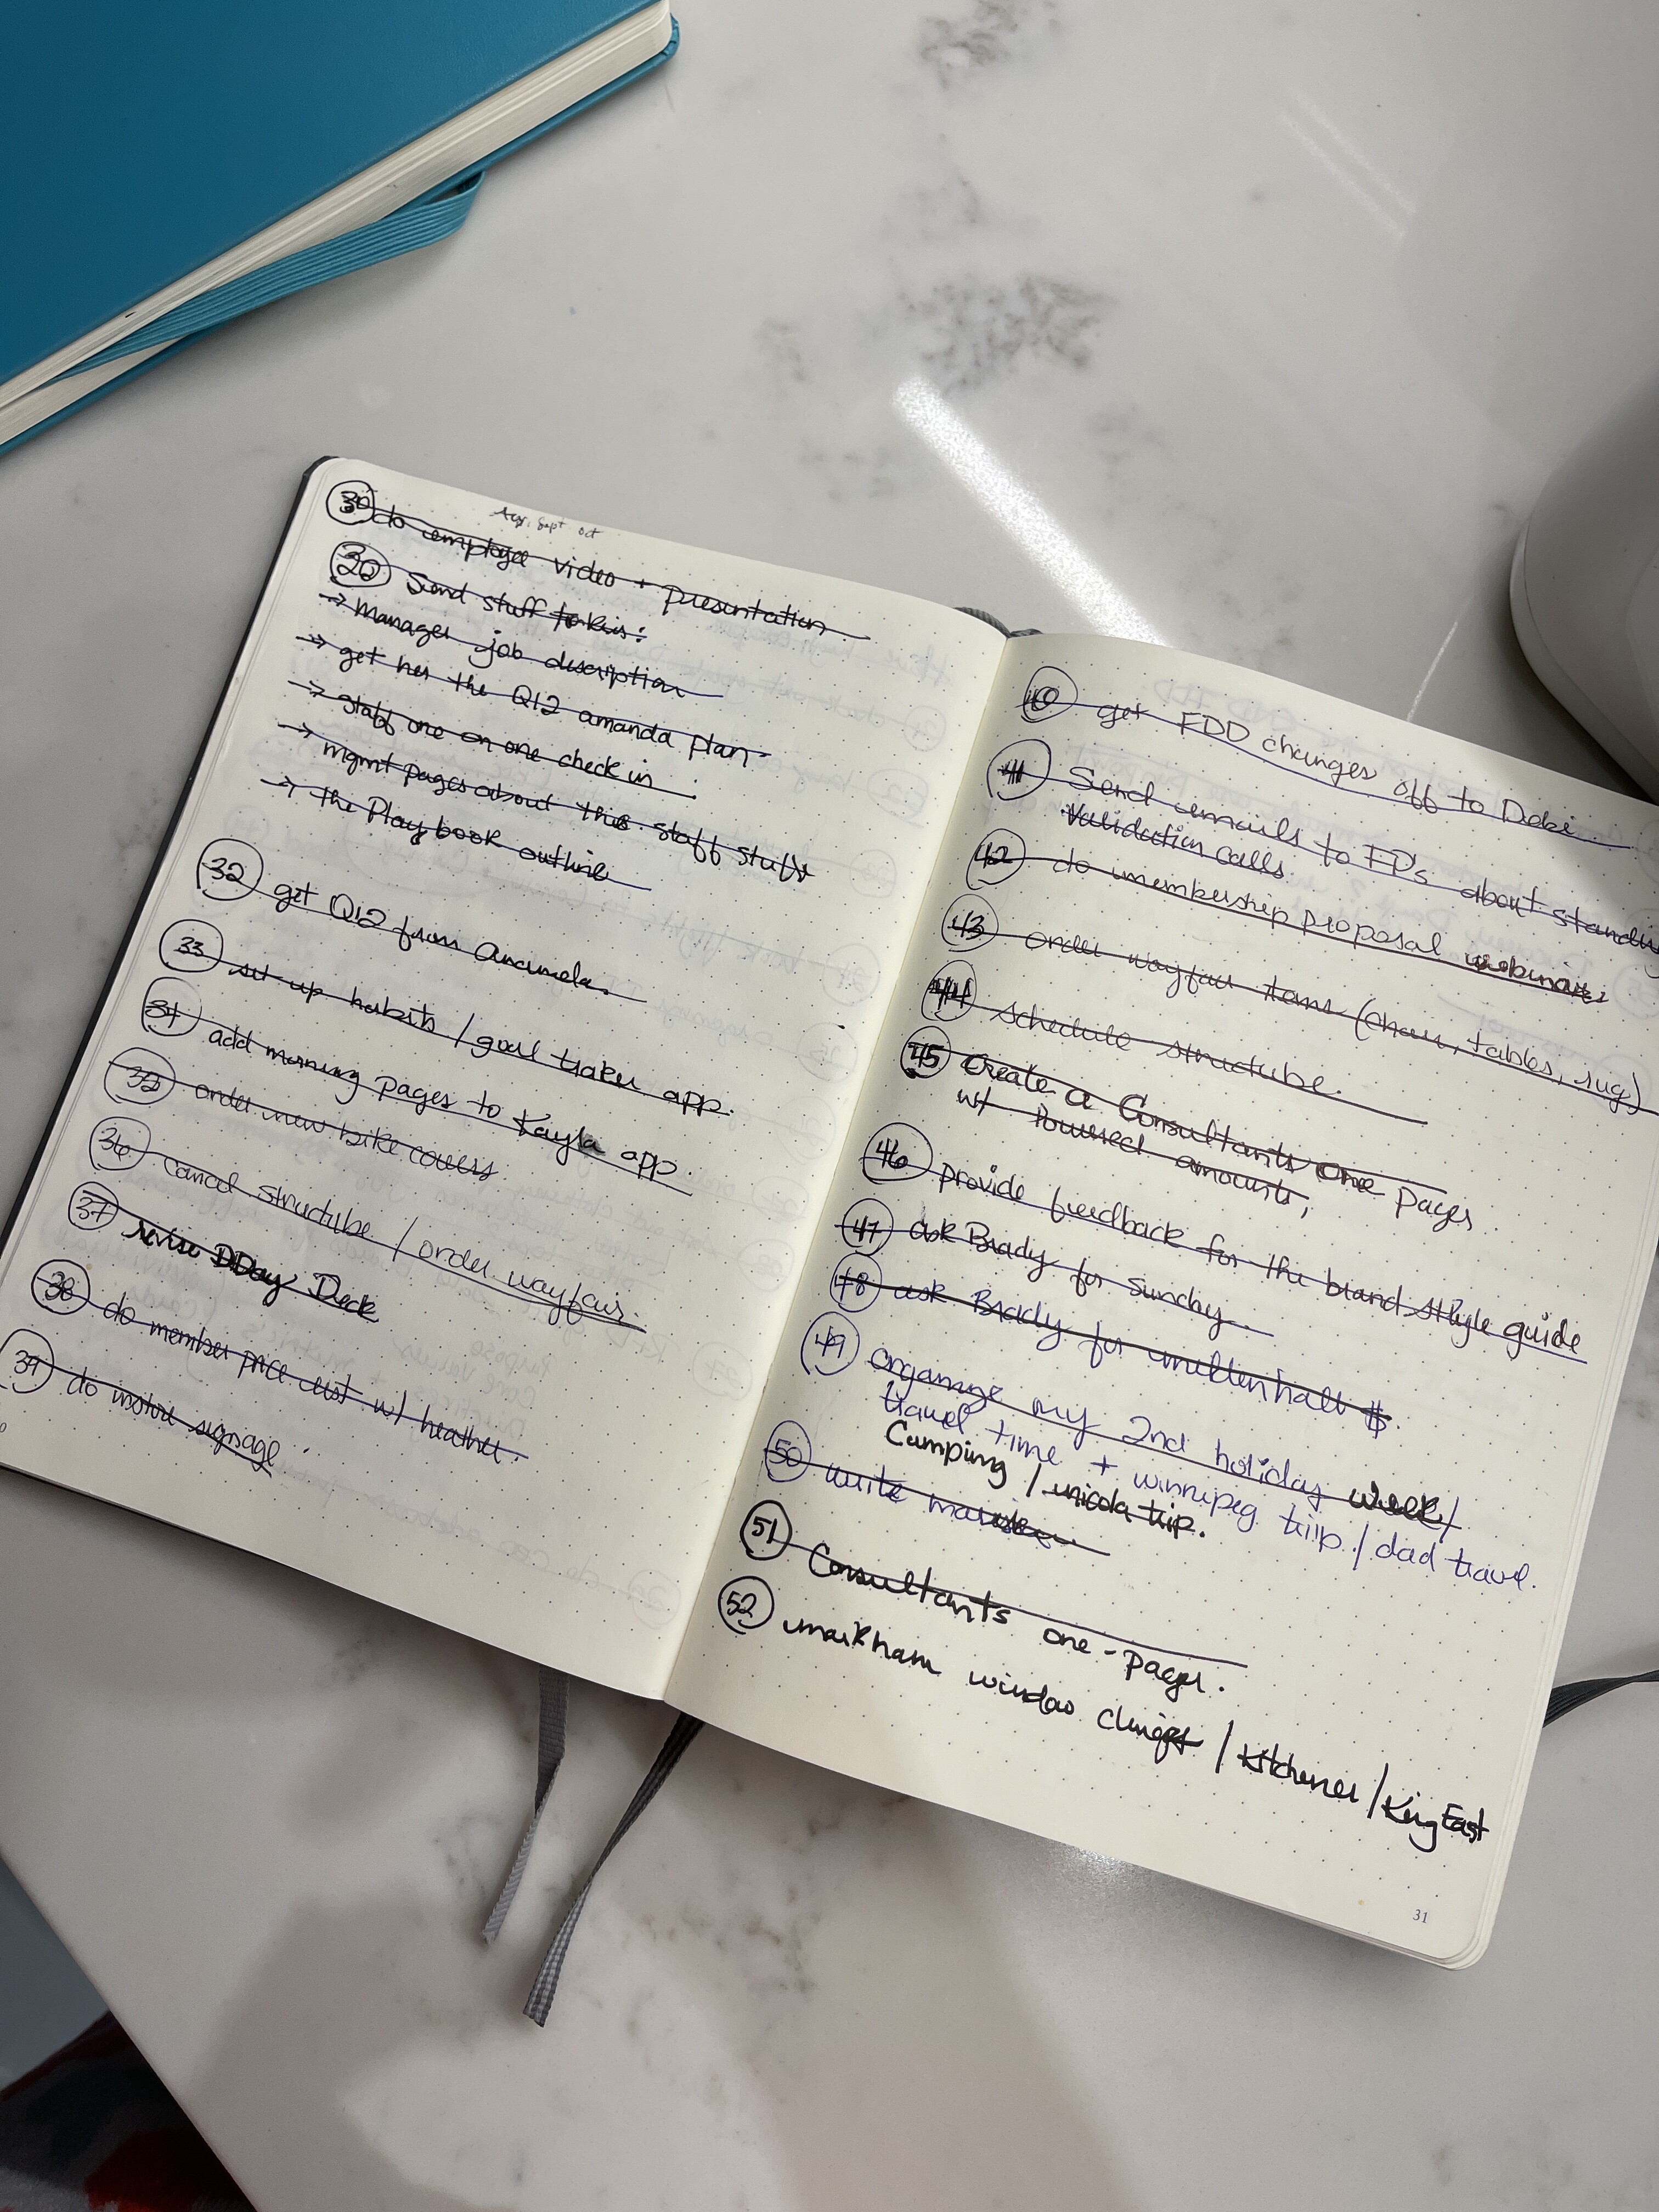 Aug, Sept Oct
30 do employee video + presentation
30 Send stuff to Kris:
→ Manager job description
→ get her the Q12 amanda plan
→ staff one on one check in
→ mgmt pages about this staff stuff
→ the Playbook outline
32 get Q12 from Amanda.
33 set up habits / goal traker app.
34 add morning pages to Kayla app.
35 order new bike covers
36 cancel structube / order wayfair.
37 revise DDay Deck
38 do member price list w/ heather.
39 do instore signage
40 get FDD changes off to Debi
41 Send emails to FP's about standing
Validation calls
42 do membership proposal webinar
43 order wayfair items (chair, tables, rug)
44 schedule structube.
45 Create a Consultants one pages
w/ amounts,
46 provide feedback for the brand style guide
47 ask Brady for sunday.
48 ask Brady for $.
49 organize my 2nd holiday week/
travel time + winnipeg trip / dad travel.
Camping / trip.
50 write
51 Consultants one-pager.
52 markham window / Kitchener / King East
31